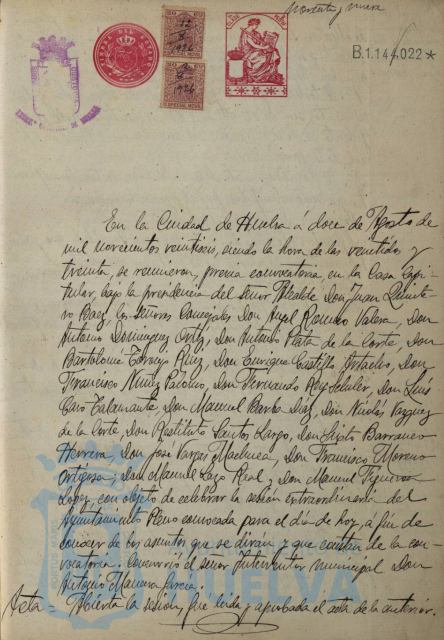 noventa y nueve
B.1.144,022*
12
8
1926
ESPECIAL MOVIL
8
1926
ESPECIAL MOVIL
En la Ciudad de Huelva á doce de Agosto de
mil novecientos veintiseis, siendo la hora de las veintidos y
treinta, se reunieron, previa convocatoria, en la Casa Capi-
tular, bajo la presidencia del Señor Alcalde Don Juan Quinte-
ro Baez, los Señores Concejales Don Angel Romero Valera, Don
Antonio Dominguez Ortiz, Don Antonio Plata de la Corte, Don
Bartolomé Toronjo Ruiz, Don Enrique Castillo, Don
Francisco Muñoz Palacios, Don Fernando Rey, Don Luis
Caro Talamante, Don Manuel Barba Diaz, Don Nicolás Vazquez
de la Corte, Don Restituto Santos Largo, Don Sixto Barranco
Herrera, Don Jose Vargas Machuca, Don Francisco Moreno
Ortigosa, Don Manuel Lazo Real, y Don Manuel Figueroa
Lopez, con objeto de celebrar la sesión extraordinaria del
Ayuntamiento Pleno convocada para el día de hoy, á fin de
conocer de los asuntos que se dirán y que constan de la con-
vocatoria. Concurrió el señor Interventor municipal Don
Antonio García.
Acta = Abierta la sesión, fué leída y aprobada el acta de la anterior.
PORTUS MARIS
HUELVA